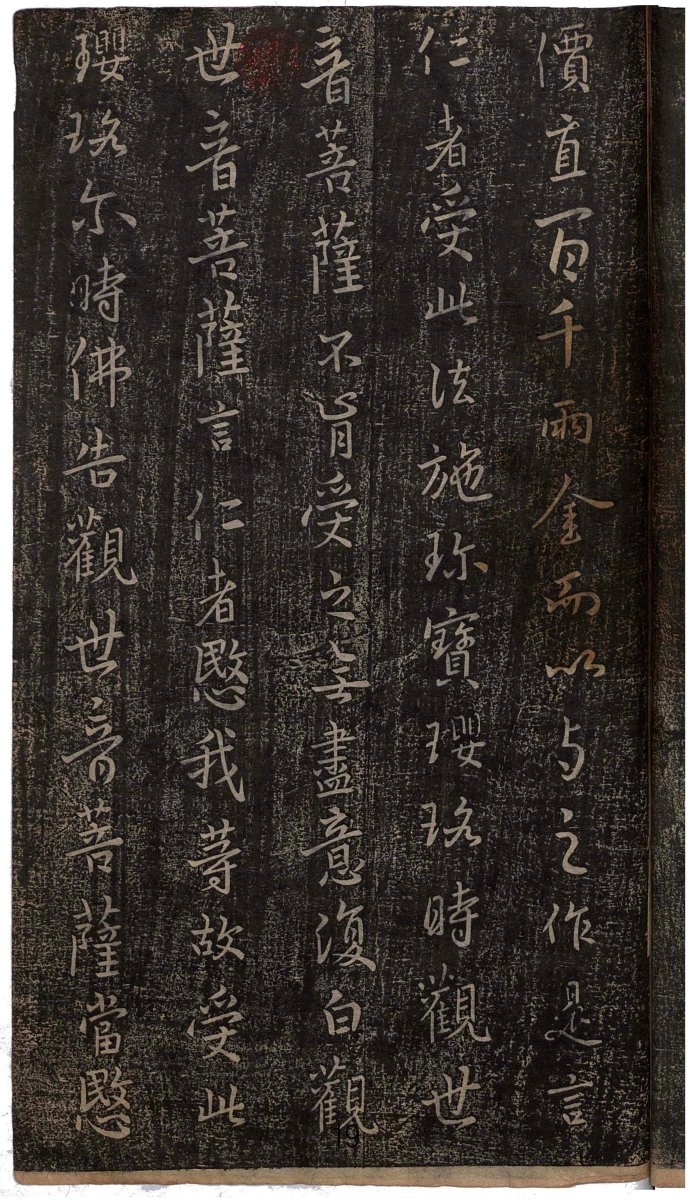 價直百千兩金而以与之作是言
仁者受此法施珎寶瓔珞時觀世
音菩薩不肯受之無盡意復白觀
世音菩薩言仁者愍我等故受此
瓔珞尔時佛告觀世音菩薩當愍